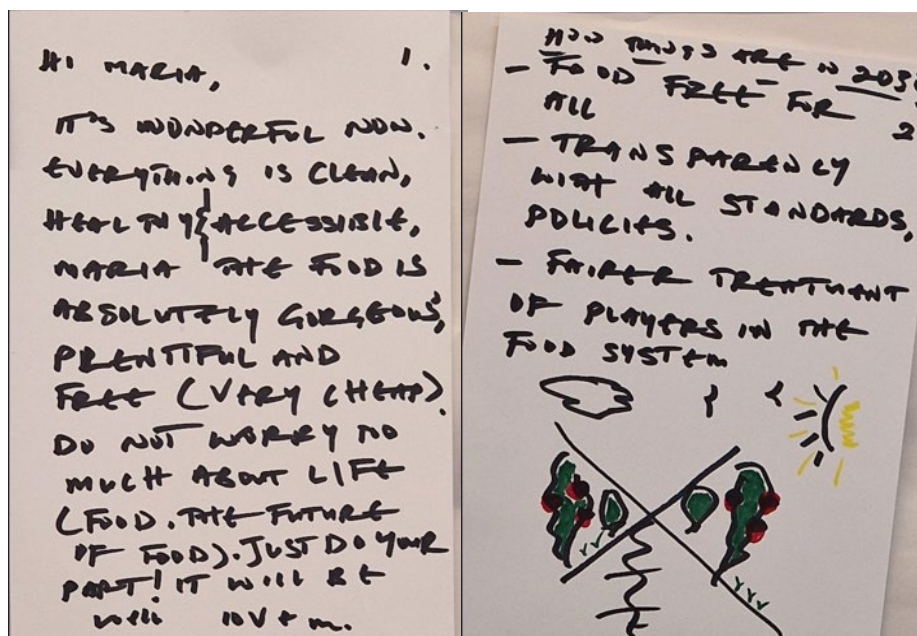 HI MARIA, 1.
IT'S WONDERFUL NOW.
EVERYTHING IS CLEAN,
HEALTHY & ACCESSIBLE,
MARIA THE FOOD IS
ABSOLUTELY GORGEOUS,
PLENTIFUL AND
FREE (VERY CHEAP).
DO NOT WORRY TOO
MUCH ABOUT LIFE
(FOOD. THE FUTURE
OF FOOD). JUST DO YOUR
PART! IT WILL BE
well
HOW THINGS ARE IN
- FOOD FREE FOR
ALL 2
- TRANSPARENCY
WITH ALL STANDARDS,
POLICIES.
- FAIRER TREATMENT
OF PLAYERS IN THE
FOOD SYSTEM